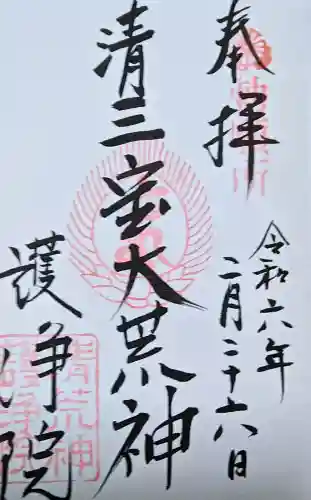 奉拝
令和六年
二月二十六日
清三宝大荒神
護浄院
清荒神
護浄院